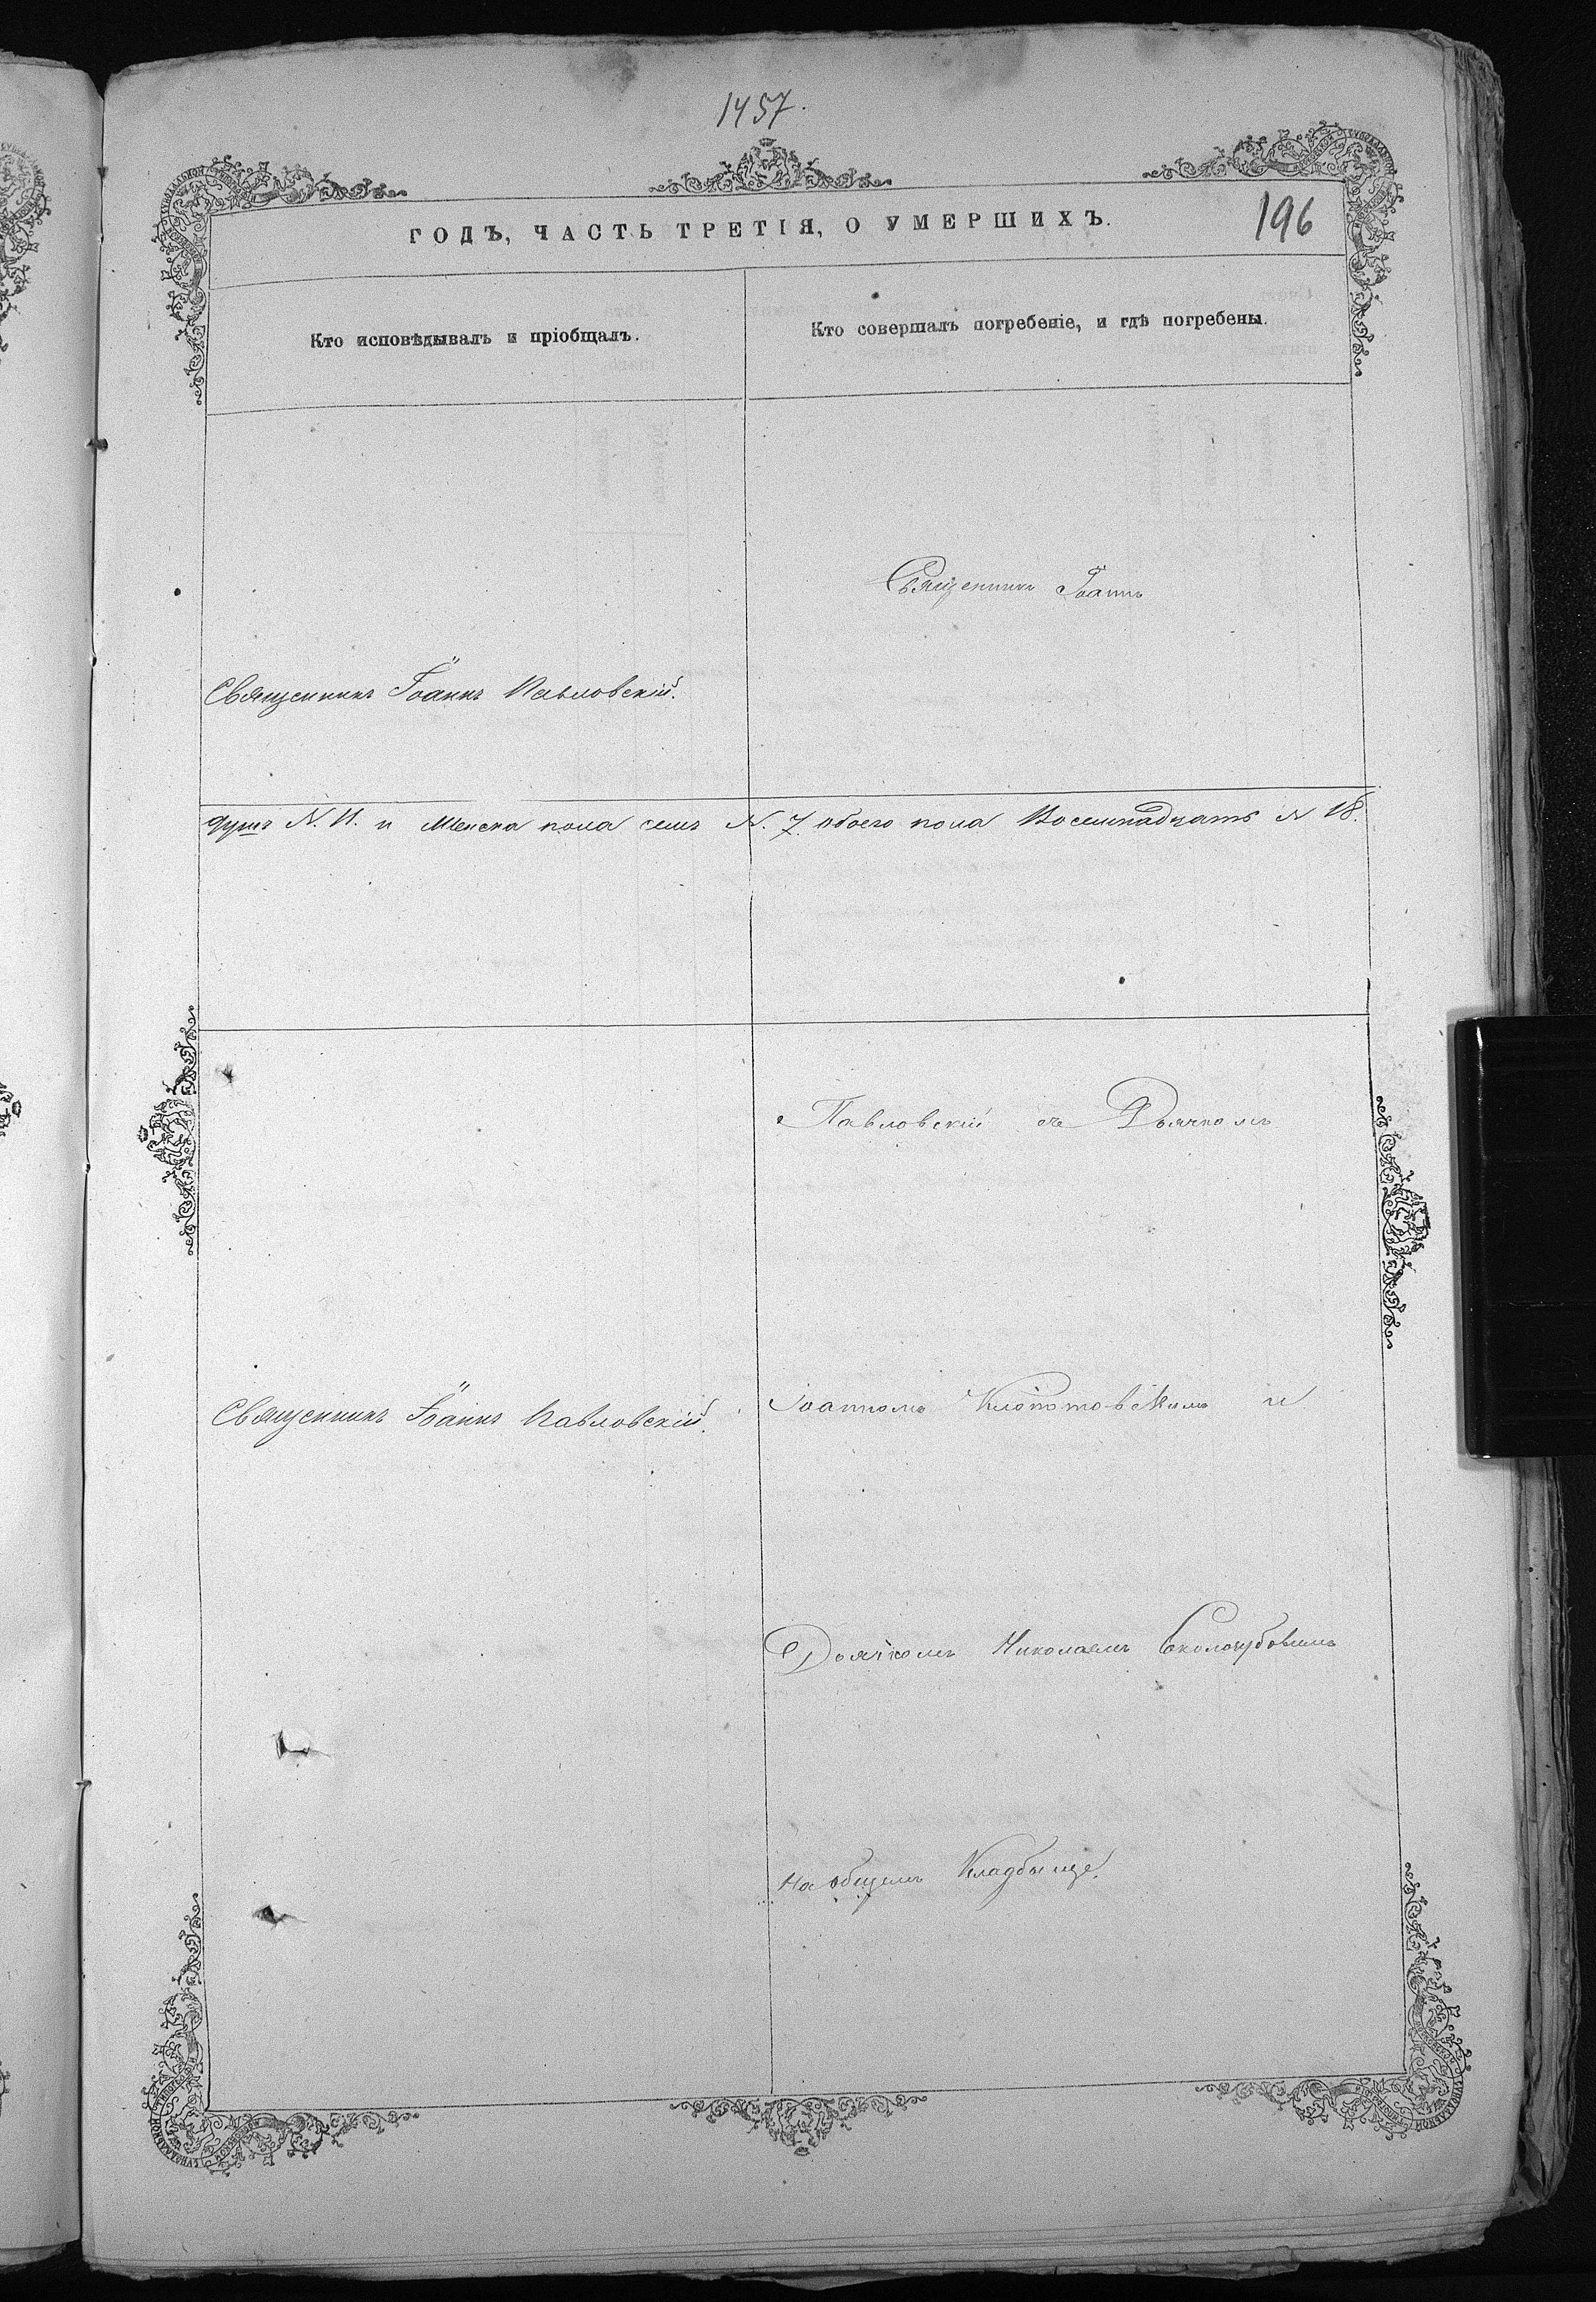 1457.
ГОДЪ, ЧАСТЬ ТРЕТІЯ, О УМЕРШИХЪ.
196
Кто исповѣдывалъ и пріобщалъ.
Кто совершалъ погребеніе, и гдѣ погребены.
Священникъ Іоаннъ
Священникъ Іоаннъ Павловскій.
душъ N. 11. и Женска пола семъ N. 7. обоего пола Восемнадцать N 18.
Павловскій съ Дьячкомъ
Священникъ Іоаннъ Павловскій.
Іоанномъ Клопотовскимъ и
Дьячкомъ Николаемъ
На общемъ Кладбыще.